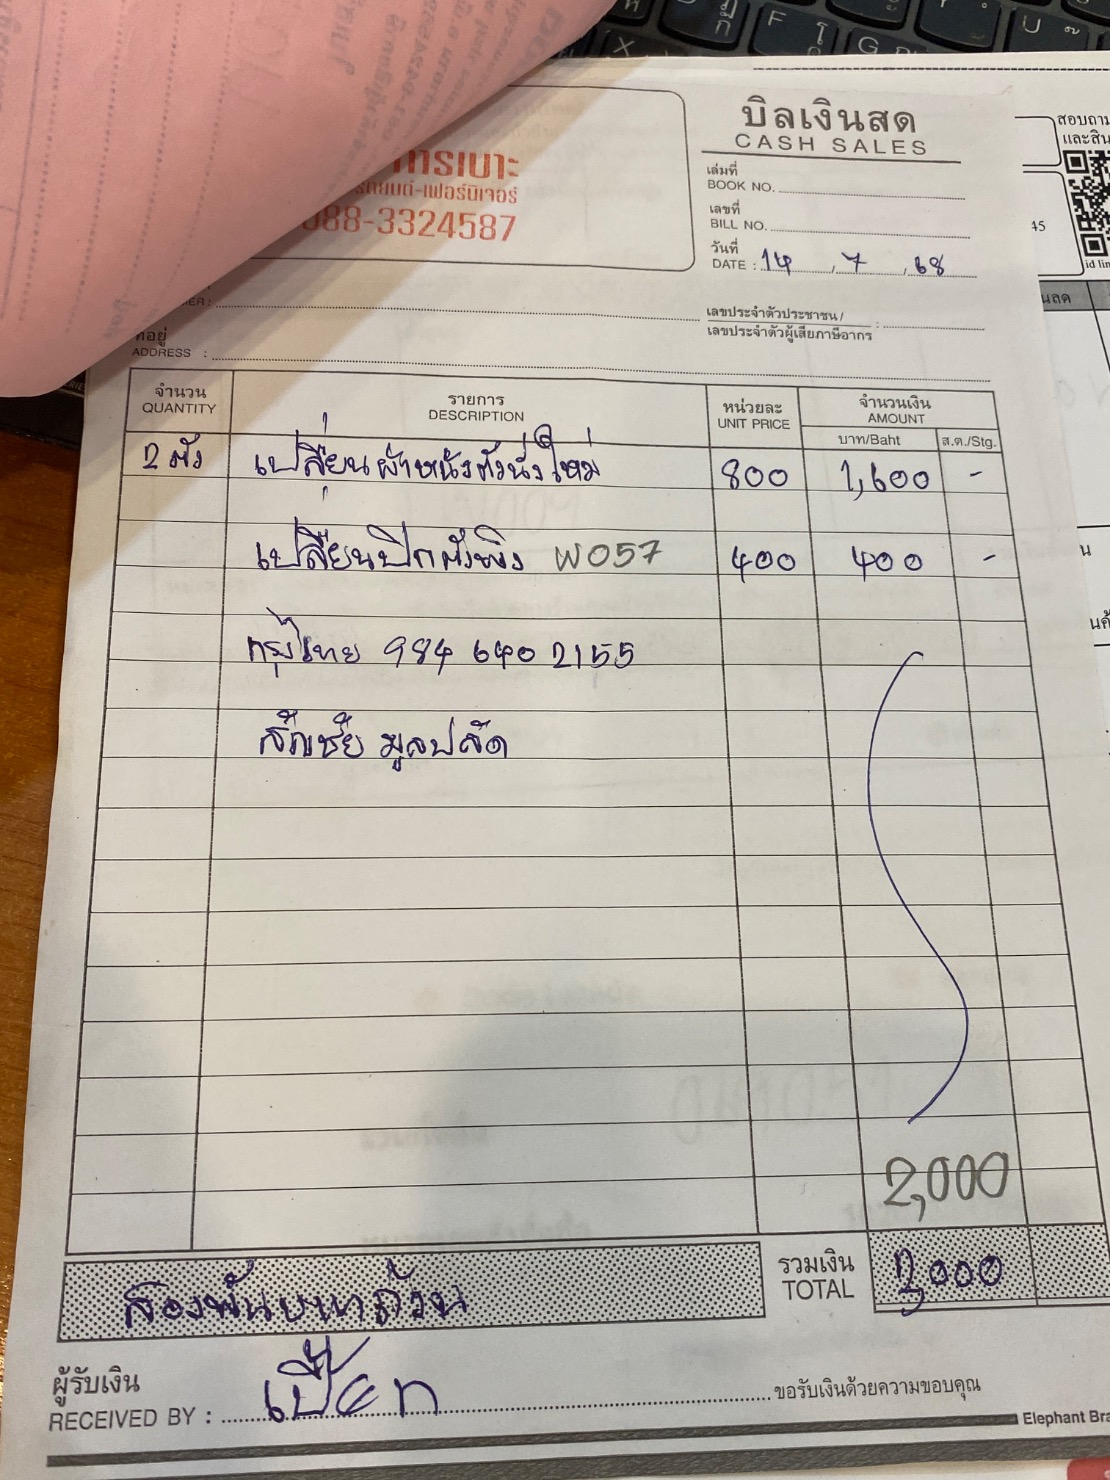 บิลเงินสด
CASH SALES
เล่มที่
BOOK NO.
เลขที่
BILL NO.
วันที่
DATE : 14 , 7 , 68
การเบาะ
รถยนต์-เฟอร์นิเจอร์
088-3324587
สอบถาม
และสิน
45
id lin
เลขประจำตัวประชาชน /
เลขประจำตัวผู้เสียภาษีอากร :
ที่อยู่
ADDRESS :
จำนวน รายการ หน่วยละ จำนวนเงิน
QUANTITY DESCRIPTION UNIT PRICE AMOUNT
บาท/Baht ส.ต./Stg.
2 ตัว เปลี่ยนผ้าหนังตัวนั่งใหม่ 800 1,600 -
เปลี่ยนปีกตัวพิง W057 400 400 -
กรุงไทย 984 640 2155
สัญชัย มูลปลัด
2,000
รวมเงิน
TOTAL 2,000
สองพันบาทถ้วน
ผู้รับเงิน
RECEIVED BY : เปี๊ยก ขอรับเงินด้วยความขอบคุณ
Elephant Bra